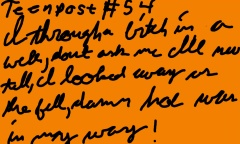 Teenpost #54
I through a bitch in a
well, dont ask me Ill nev
tell, I looked away as
she fell, damn hoe was
in my way!